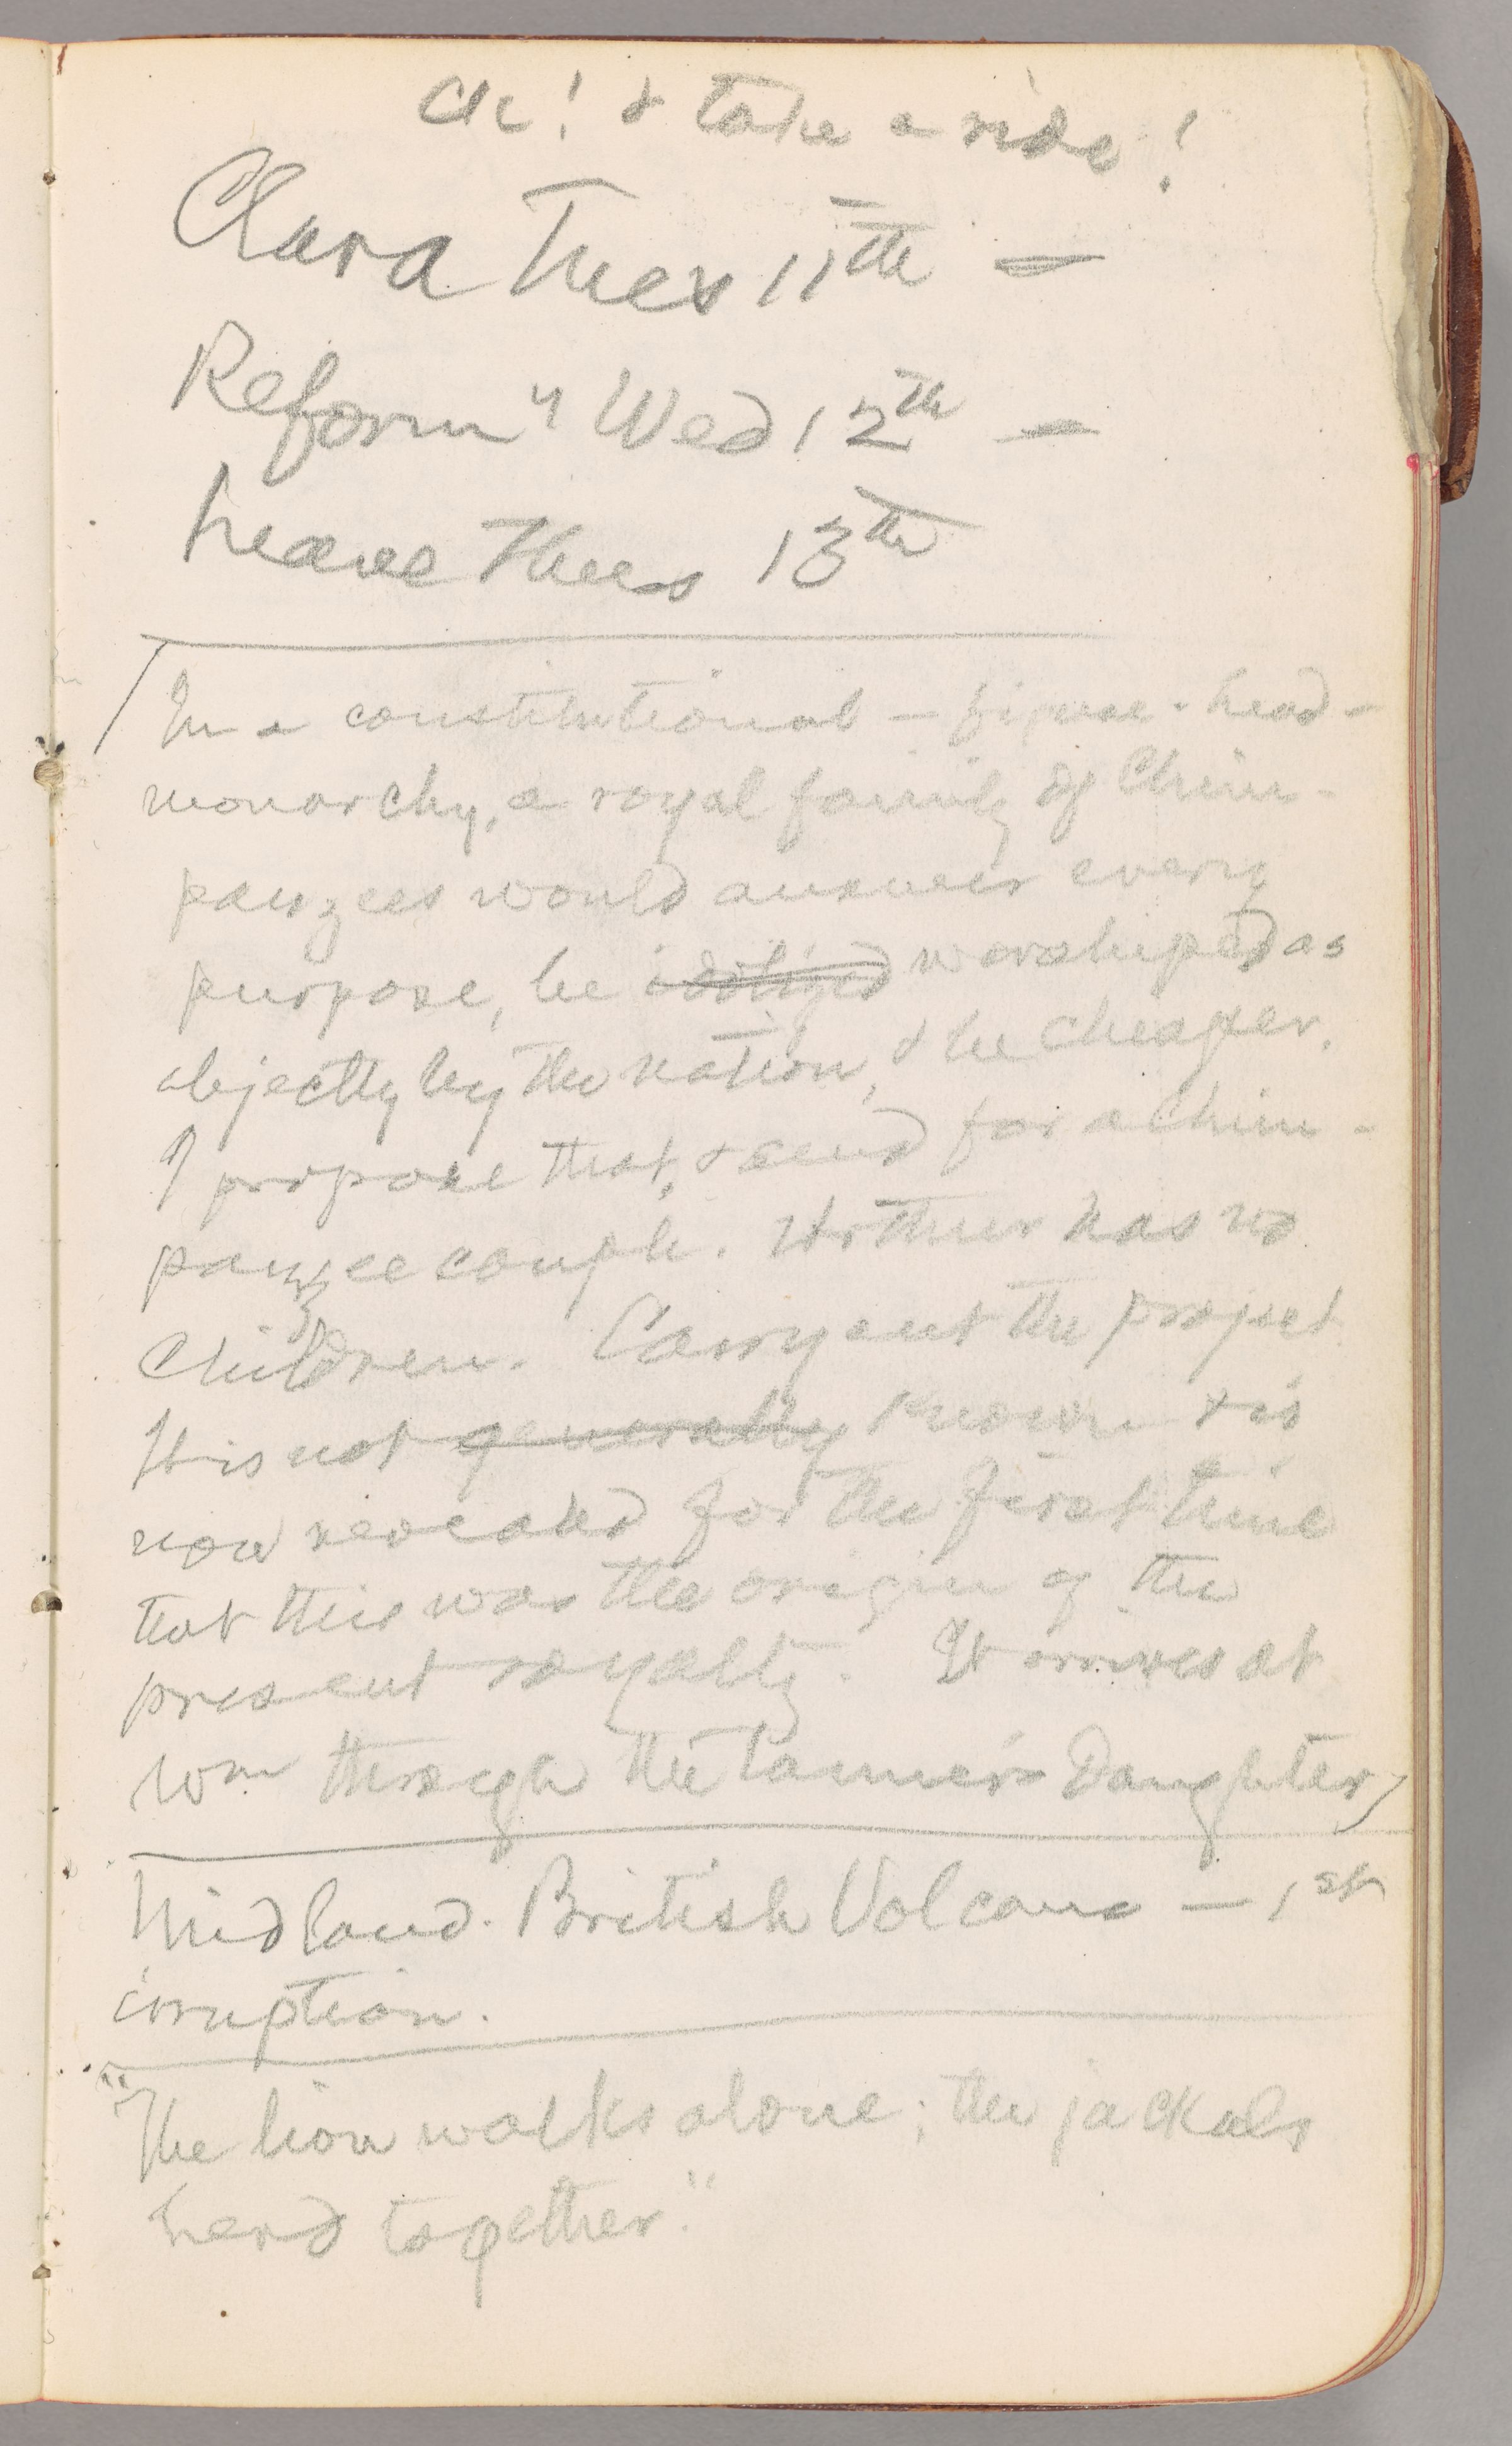 & take a ride!
Clara Tues 11th —
Reform " Wed 12th —
Leave Thurs 13th
In a constitutional — figure-head-
monarchy, a royal family of Chim-
panzees would answer every
purpose, be idolized worshiped as
abjectly by the nation, & be cheaper.
I propose that, & send for a Chim-
panzee couple. Arthur has no
children. Carry out the project
It is not generally known & is
now revealed for the first time
that this was the origin of the
present royalty. It arrives at
Wm through the tanner's Daughter
Midland. British Volcano — 1st
irruption.
"The lion walks alone; the jackals
herd together."